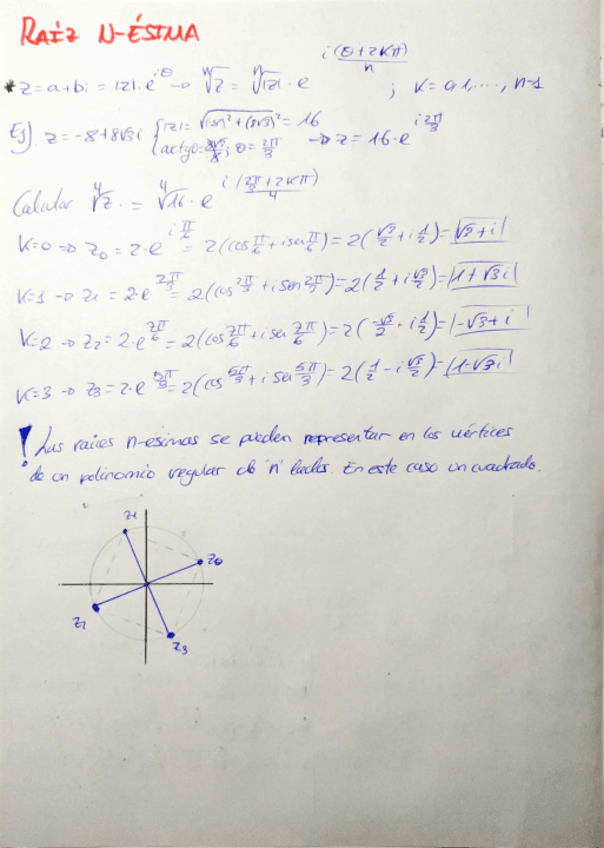 RAÍZ N-ÉSIMA
* z = a+bi = |z|·e^{iθ} → ⁿ√z = ⁿ√|z| · e^{i(θ+2kπ)/n} ; k = 0,1,..., n-1
Ej) z = -8+8√3i { |z| = √((-8)²+(8√3)²) = 16 → z = 16·e^{i2π/3}
θ = 2π/3
Calcular ⁴√z = ⁴√16 · e^{i(2π/3+2kπ)/4}
k=0 ⇒ z₀ = 2·e^{iπ/6} = 2(cos π/6 + i sen π/6) = 2(√3/2 + i 1/2) = |√3+i|
k=1 → z₁ = 2·e^{2π/3} = 2(cos 2π/3 + i sen 2π/3) = 2(1/2 + i √3/2) = |1+√3i|
k=2 → z₂ = 2·e^{7π/6} = 2(cos 7π/6 + i sen 7π/6) = 2(-√3/2 + i 1/2) = |-√3+i|
k=3 → z₃ = 2·e^{5π/3} = 2(cos 5π/3 + i sen 5π/3) = 2(1/2 - i √3/2) = |1-√3i|
! Las raíces n-ésimas se pueden representar en los vértices
de un polinomio regular de "n" lados. En este caso un cuadrado.
z₁
z₀
z₂
z₃